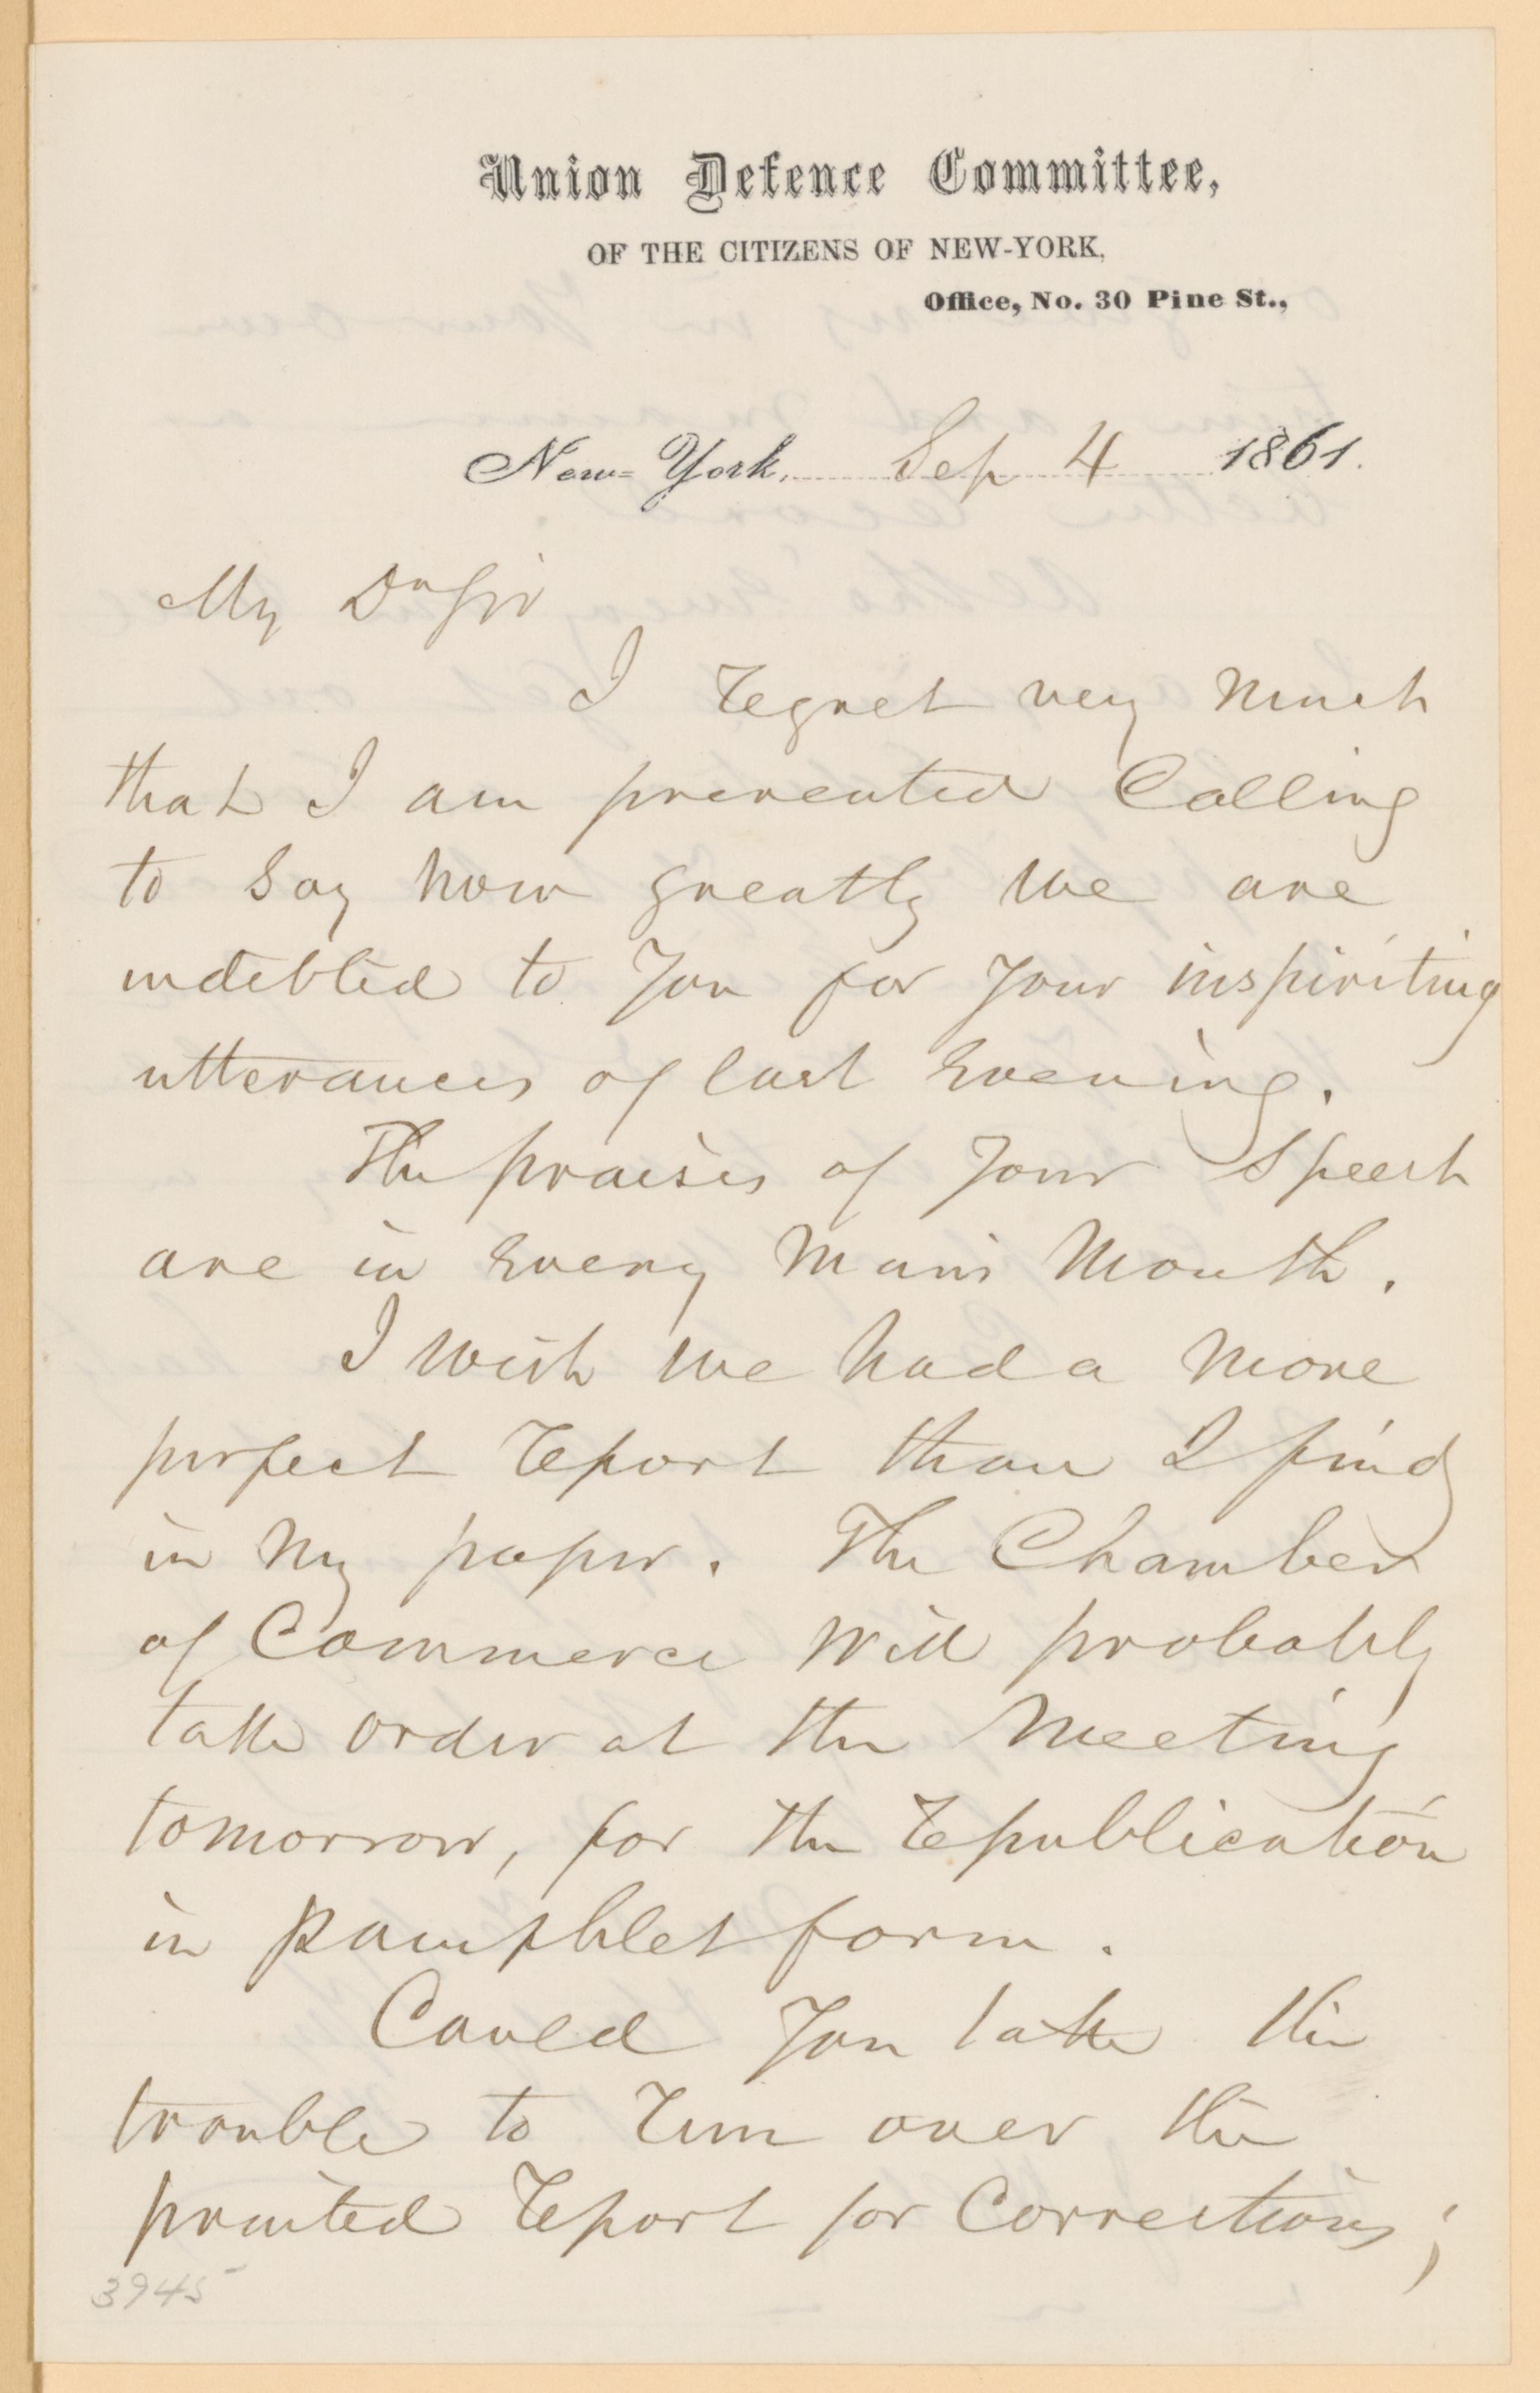 Union Defence Committee,
OF THE CITIZENS OF NEW-YORK,
Office, No. 30 Pine St.,
New-York, Sep 4 1861.
My Dr Sir
I regret very much
that I am prevented Calling
to say how greatly we are
indebted to You for Your inspiriting
utterances of last Evening.
The praises of Your Speech
are in Every Man's Mouth.
I wish we had a more
perfect report than I find
in my paper. The Chamber
of Commerce will probably
take order at the Meeting
tomorrow, for the republication
in pamphlet form.
Could You take the
trouble to run over the
printed report for Corrections;
3945